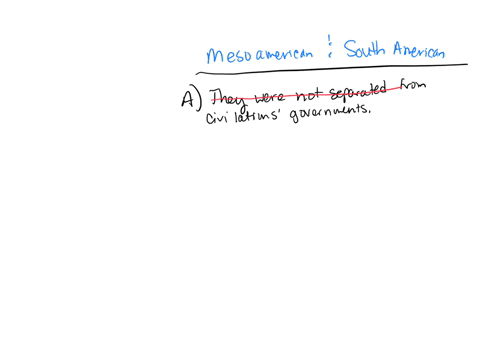 Mesoamerican & South American
A) They were not separated from
civilations' governments.